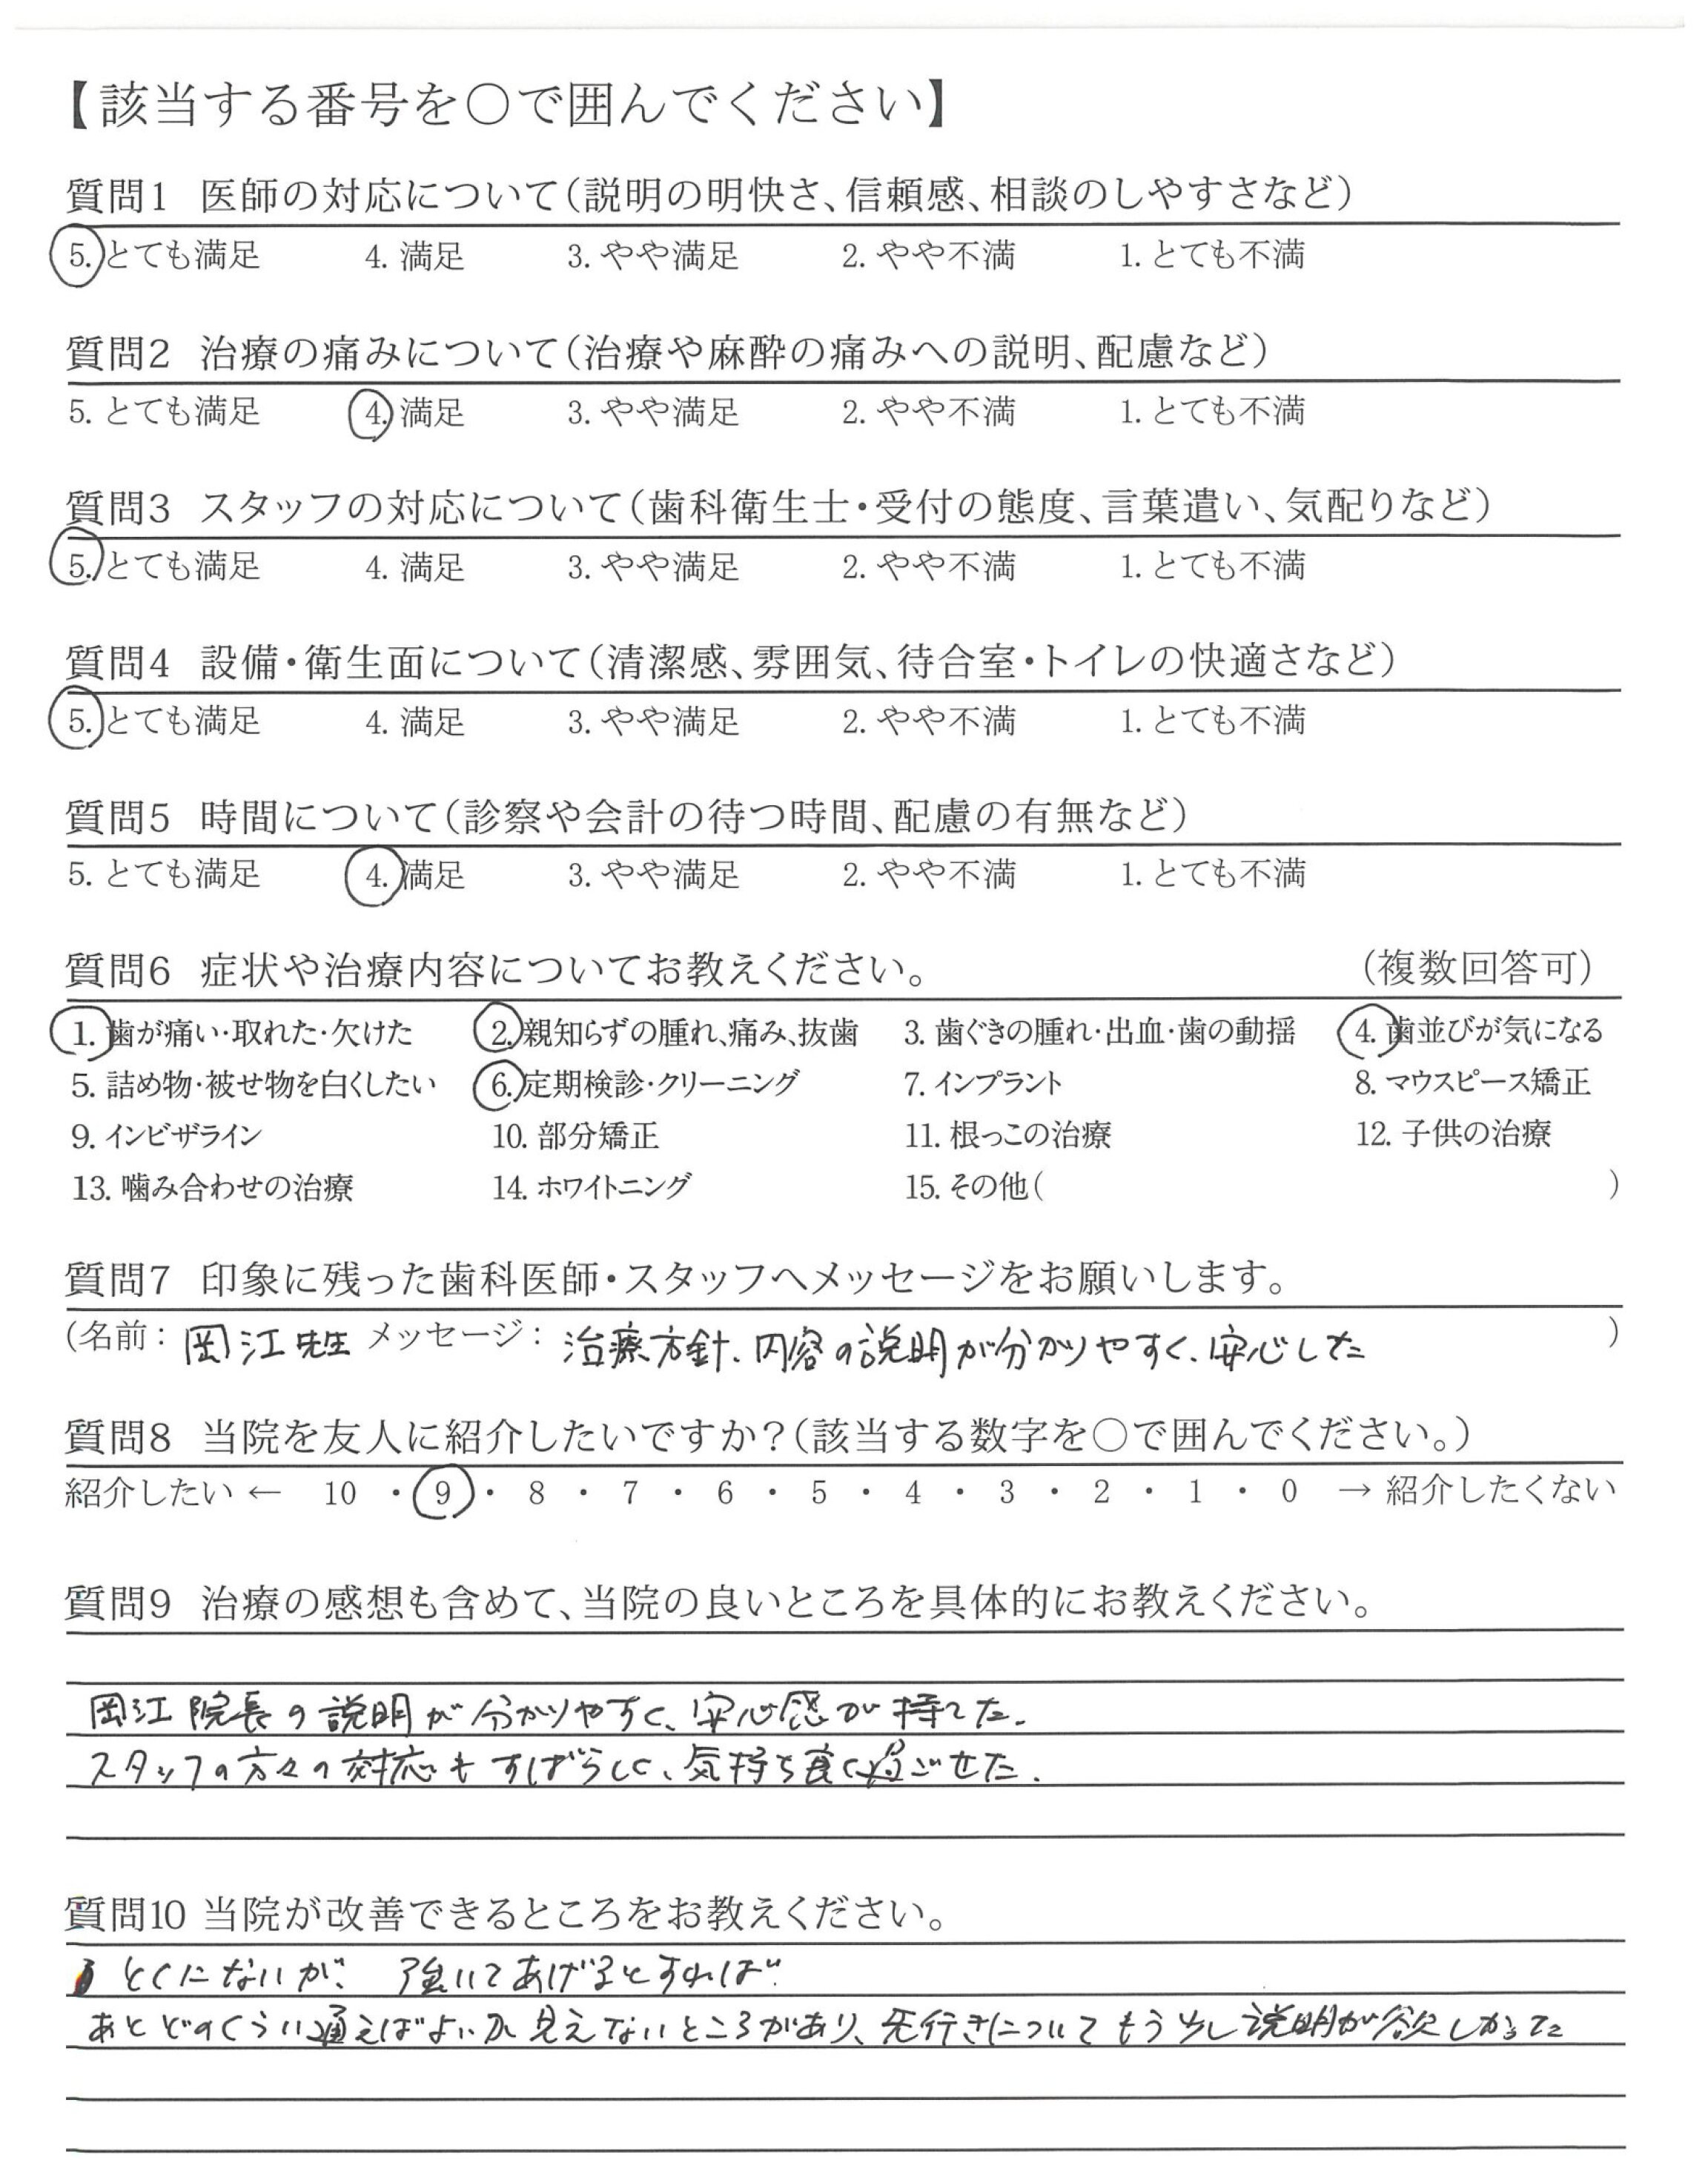 【該当する番号を○で囲んでください】
質問1 医師の対応について(説明の明快さ、信頼感、相談のしやすさなど)
5. とても満足 4. 満足 3. やや満足 2. やや不満 1. とても不満
質問2 治療の痛みについて(治療や麻酔の痛みへの説明、配慮など)
5. とても満足 4. 満足 3. やや満足 2. やや不満 1. とても不満
質問3 スタッフの対応について(歯科衛生士・受付の態度、言葉遣い、気配りなど)
5. とても満足 4. 満足 3. やや満足 2. やや不満 1. とても不満
質問4 設備・衛生面について(清潔感、雰囲気、待合室・トイレの快適さなど)
5. とても満足 4. 満足 3. やや満足 2. やや不満 1. とても不満
質問5 時間について(診察や会計の待つ時間、配慮の有無など)
5. とても満足 4. 満足 3. やや満足 2. やや不満 1. とても不満
質問6 症状や治療内容についてお教えください。 (複数回答可)
1. 歯が痛い・取れた・欠けた 2. 親知らずの腫れ、痛み、抜歯 3. 歯ぐきの腫れ・出血・歯の動揺 4. 歯並びが気になる
5. 詰め物・被せ物を白くしたい 6. 定期検診・クリーニング 7. インプラント 8. マウスピース矯正
9. インビザライン 10. 部分矯正 11. 根っこの治療 12. 子供の治療
13. 噛み合わせの治療 14. ホワイトニング 15. その他( )
質問7 印象に残った歯科医師・スタッフへメッセージをお願いします。
(名前: 岡江先生 メッセージ: 治療方針、内容の説明が分かりやすく、安心した )
質問8 当院を友人に紹介したいですか?(該当する数字を○で囲んでください。)
紹介したい ← 10 ・ 9 ・ 8 ・ 7 ・ 6 ・ 5 ・ 4 ・ 3 ・ 2 ・ 1 ・ 0 → 紹介したくない
質問9 治療の感想も含めて、当院の良いところを具体的にお教えください。
岡江院長の説明が分かりやすく、安心感が持てた。
スタッフの方々の対応もすばらしく、気持ち良く過ごせた。
質問10 当院が改善できるところをお教えください。
とくにないが、強いてあげるとすれば
あとどのくらい通えばよいか見えないところがあり、先行きについてもう少し説明が欲しかった